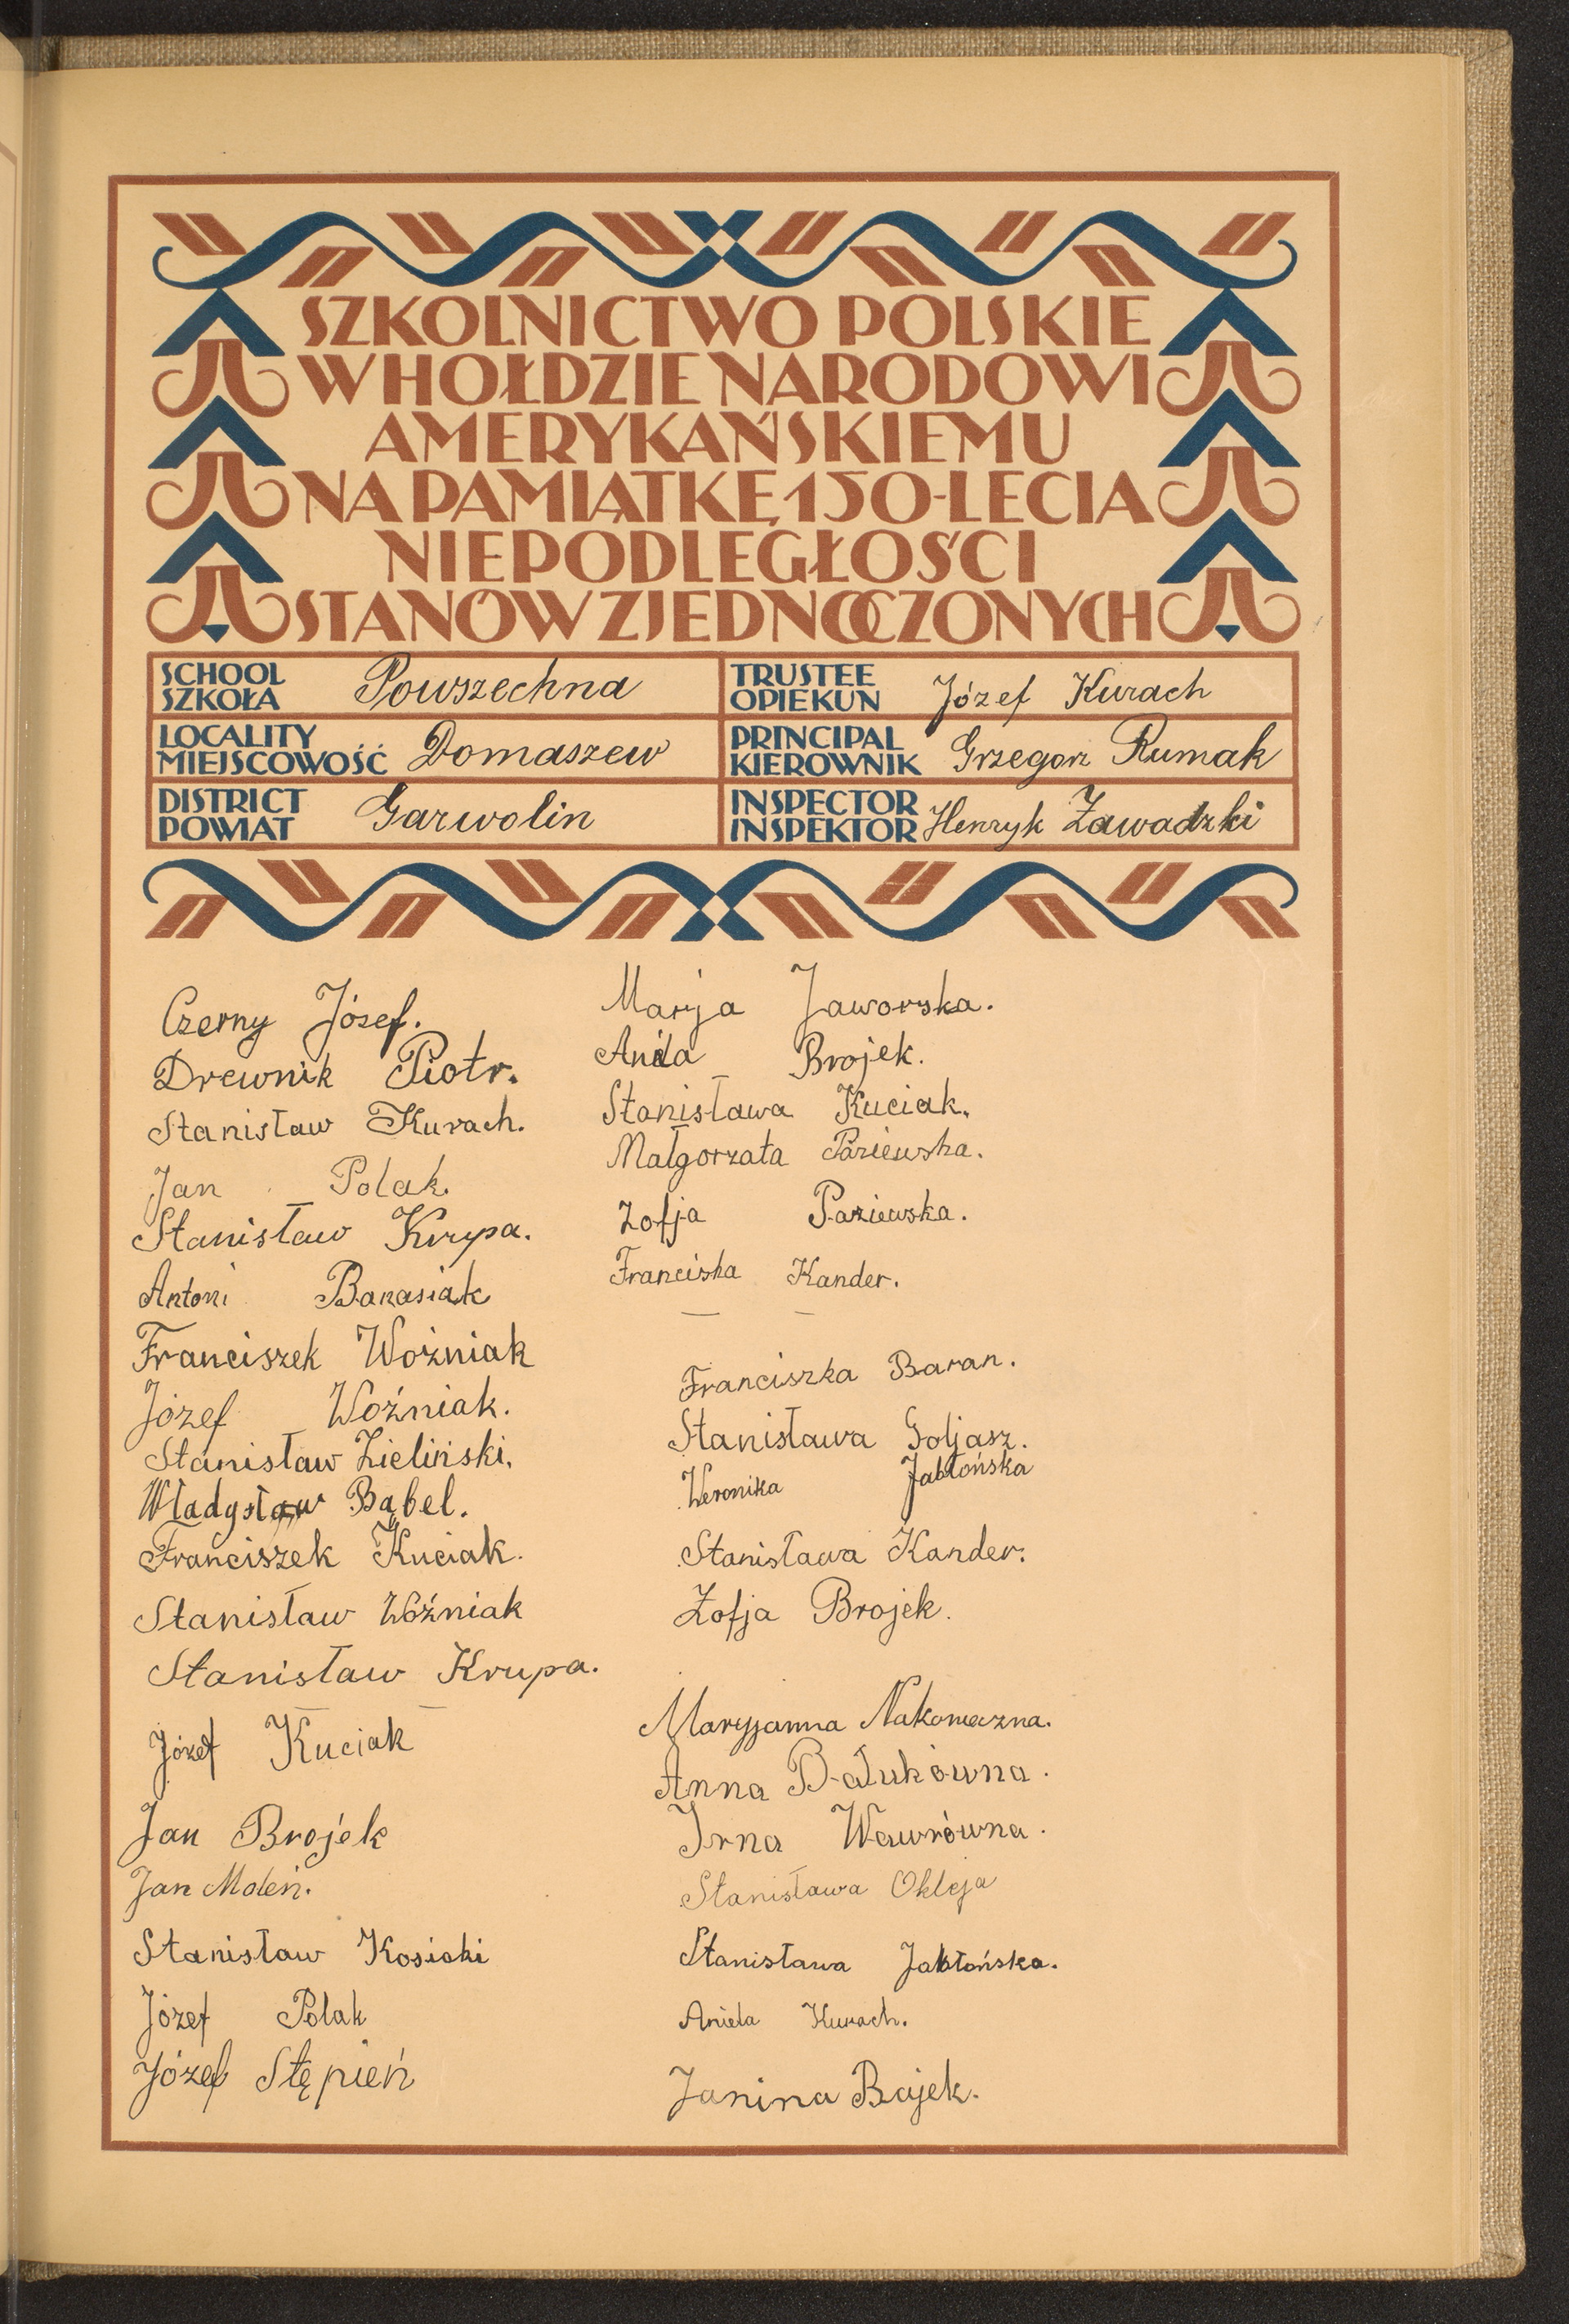 SZKOLNICTWO POLSKIE
W HOŁDZIE NARODOWI
AMERYKAŃSKIEMU
NA PAMIĄTKĘ 150-LECIA
NIEPODLEGŁOŚCI
STANÓW ZJEDNOCZONYCH
SCHOOL
SZKOŁA
Powszechna
TRUSTEE
OPIEKUN
Józef Kurach
LOCALITY
MIEJSCOWOŚĆ
Domaszew
PRINCIPAL
KIEROWNIK
Grzegorz Rumak
DISTRICT
POWIAT
Garwolin
INSPECTOR
INSPEKTOR
Henryk Zawadzki
Czerny Józef.
Drewnik Piotr.
Stanisław Kurach.
Jan Polak.
Stanisław Krypa.
Antoni Banasiak
Franciszek Woźniak
Józef Woźniak.
Stanisław Zieliński.
Władysław Bąbel.
Franciszek Kuciak.
Stanisław Woźniak
Stanisław Krupa.
Józef Kuciak
Jan Brojek
Jan Moleń.
Stanisław Kosicki
Józef Polak
Józef Stępień
Marja Jaworska.
Brojek.
Stanisława Kuciak.
Małgorzata Paziewska.
Zofja Paziewska.
Franciska Kander.
Franciszka Baran.
Stanisława Goljasz.
Weronika Jabłońska
Stanisława Kander.
Zofja Brojek.
Maryjanna Nakonieczna.
Anna Bałukówna.
Irna Wawrówna.
Stanisława Okleja
Stanisława Jabłońska.
Aniela Kurach.
Janina Bajek.